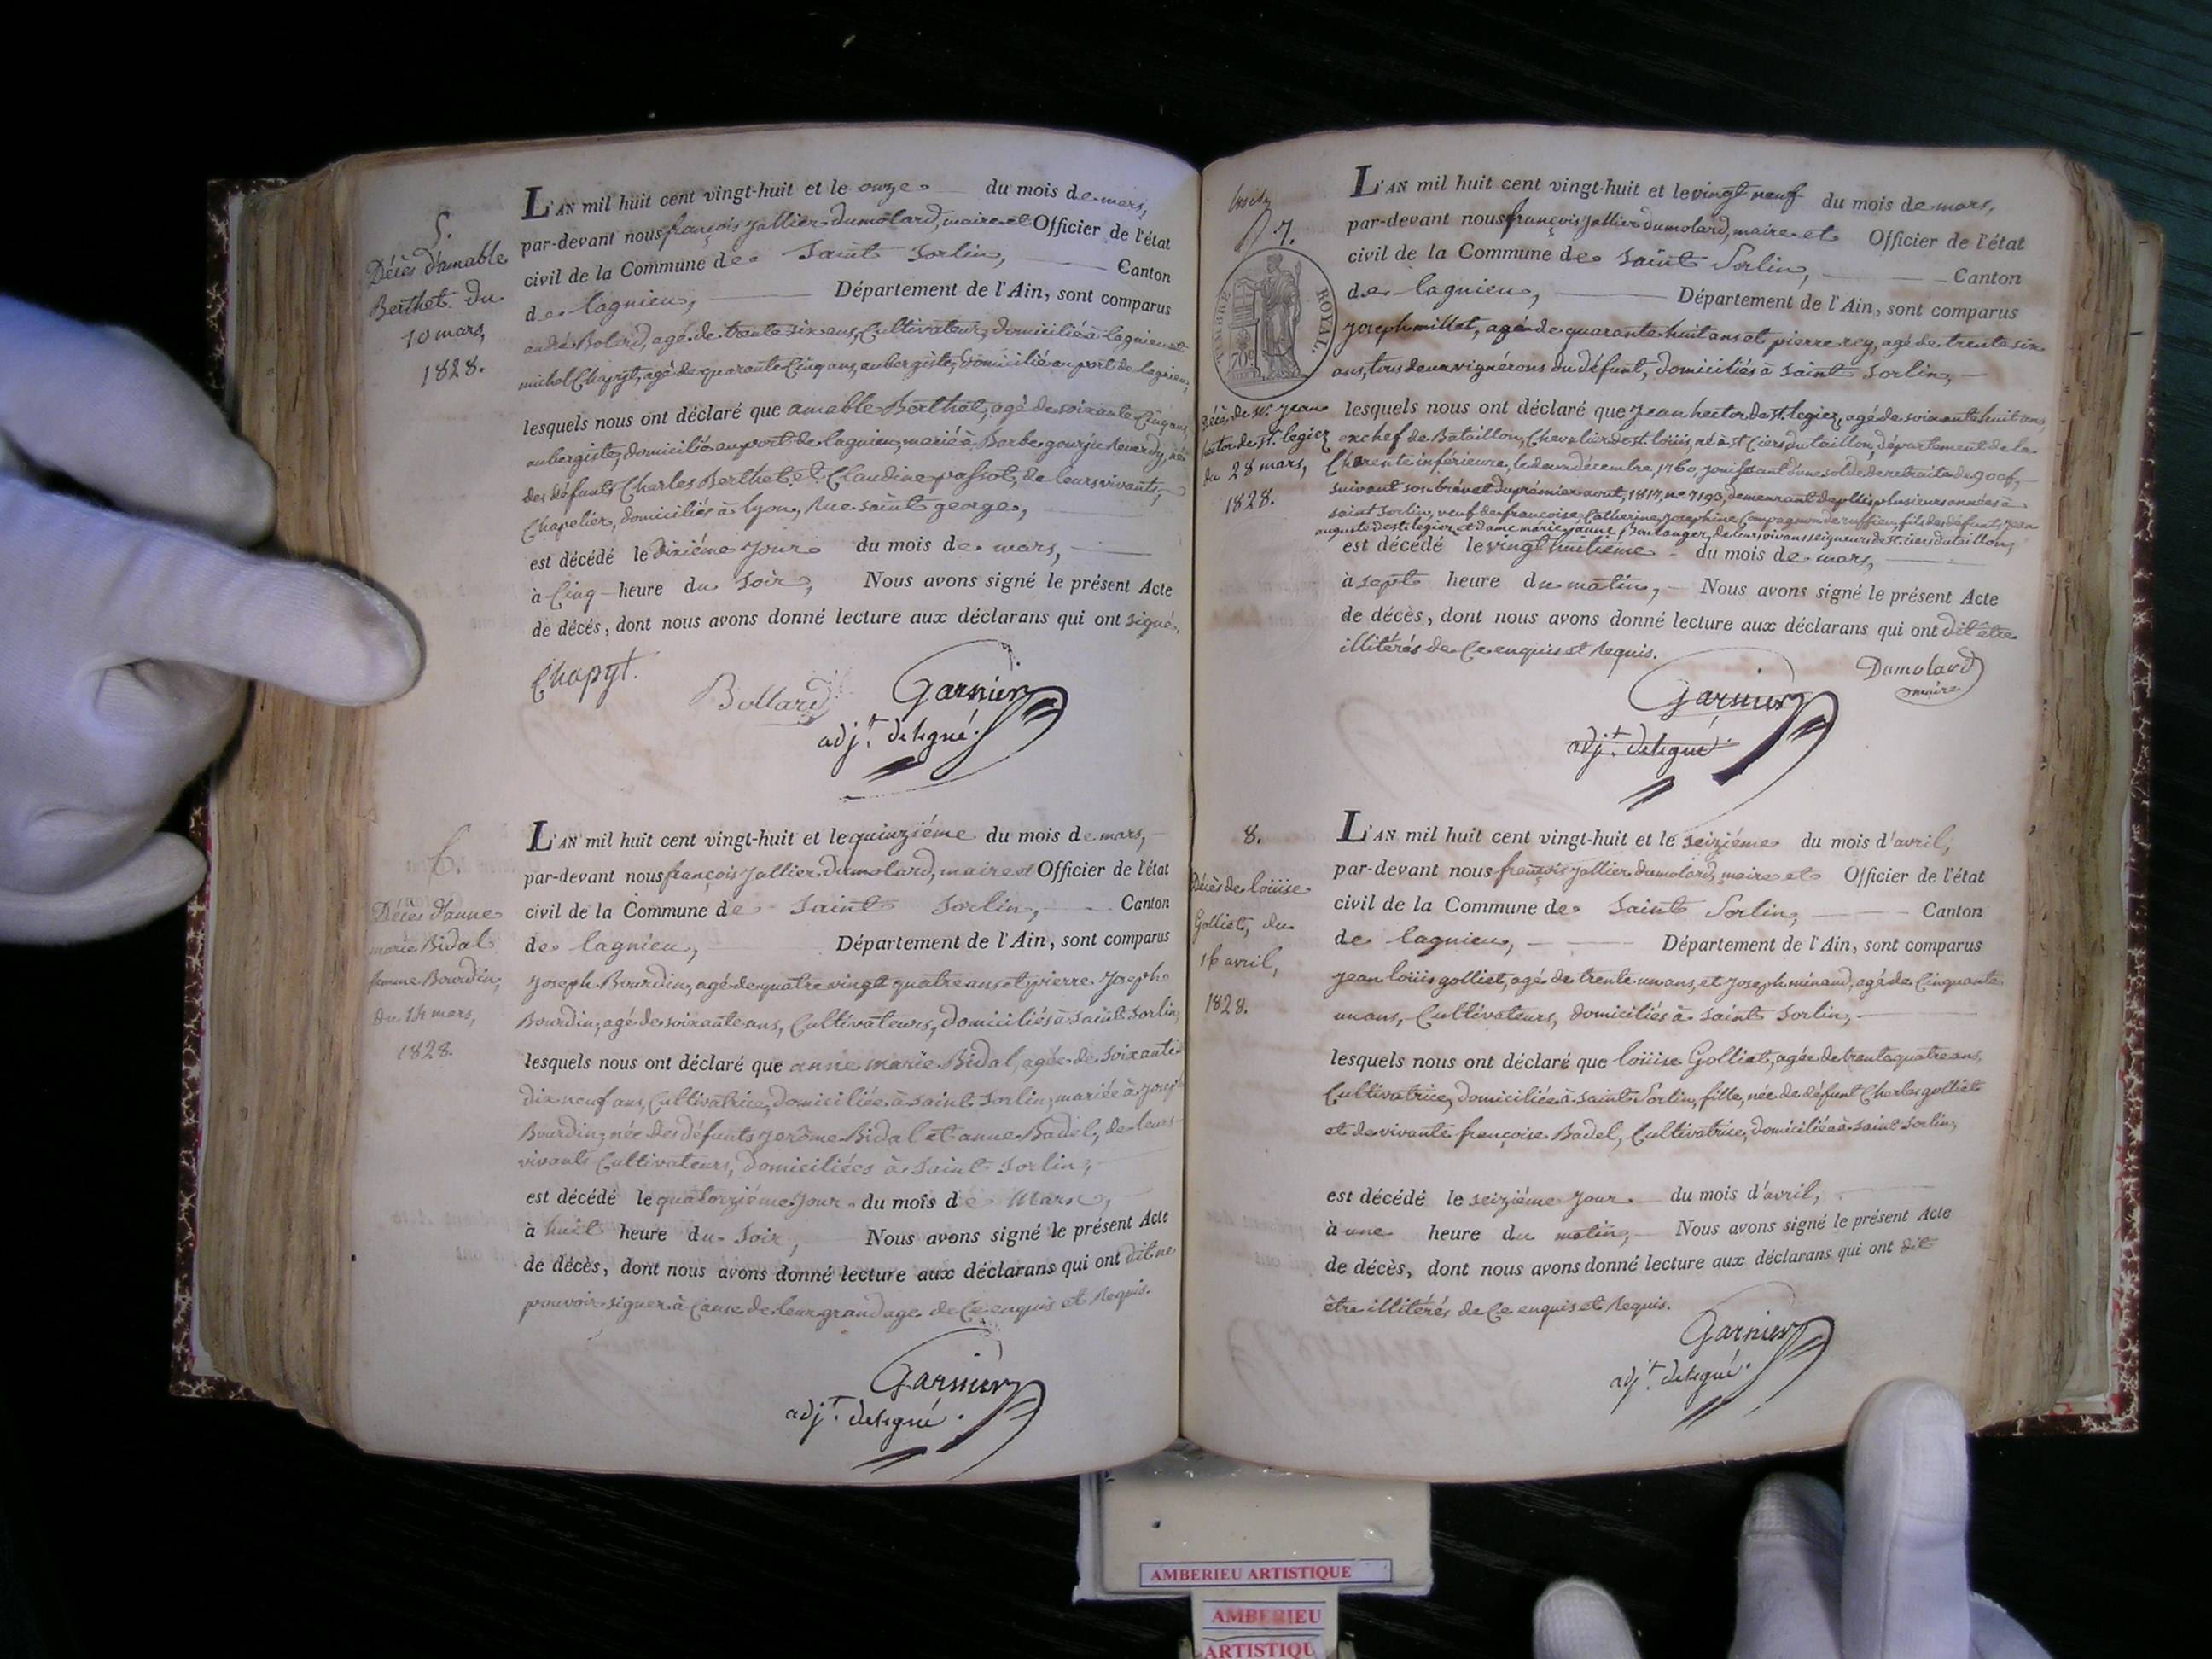 5.
Décès d'amable
Berthet du
10 mars,
1828.
L'AN mil huit cent vingt-huit et le onze du mois de mars,
par-devant nous françois Jallier Dumolard, maire et Officier de l'état
civil de la Commune de Saint Sorlin, Canton
de lagnieu, Département de l'Ain, sont comparus
andré Bolard, agé de trente six ans, Cultivateur, domicilié à lagnieu et
michel Chapyt, agé de quarante Cinq ans, aubergiste, domicilié au port de lagnieu,
lesquels nous ont déclaré que amable Berthet, agé de soixante Cinq ans
aubergiste, domicilié au port de lagnieu, marié à Barbe gourju Reverdy, né
des défunts Charles Berthet et Claudine passot, de leurs vivants,
Chapelier, domiciliés à lyon, Rue saint george,
est décédé le dixiéme jour du mois de mars,
à Cinq heure du soir, Nous avons signé le présent Acte
de décès, dont nous avons donné lecture aux déclarans qui ont signé.
Chapyt.
Bollard
Garnier
adj.t délégué.
6.
Décès d'anne
marie Bidal
femme Bourdin,
du 14 mars,
1828.
L'AN mil huit cent vingt-huit et le quinziéme du mois de mars,
par-devant nous françois Jallier Dumolard, maire et Officier de l'état
civil de la Commune de Saint Sorlin, Canton
de lagnieu, Département de l'Ain, sont comparus
Joseph Bourdin, agé de quatre vingt quatre ans et pierre Joseph
Bourdin, agé de soixante ans, Cultivateurs, domiciliés à saint Sorlin,
lesquels nous ont déclaré que anne marie Bidal, agée de soixante
dix neuf ans, Cultivatrice, domiciliée à saint Sorlin, mariée à Joseph
Bourdin, née des défunts jerôme Bidal et anne Badel, de leurs
vivants Cultivateurs, domiciliées à Saint Sorlin,
est décédé le quatorziéme Jour du mois de Mars,
à huit heure du Soir, Nous avons signé le présent Acte
de décès, dont nous avons donné lecture aux déclarans qui ont dit ne
pouvoir signer à Cause de leur grand age de Ce enquis et Requis.
Garnier
adj.t délégué.
7.
TIMBRE ROYAL.
70c
Décès de Mr. Jean
hector de st. legier
du 28 mars,
1828.
L'AN mil huit cent vingt-huit et le vingt neuf du mois de mars,
par-devant nous françois Jallier Dumolard, maire et Officier de l'état
civil de la Commune de Saint Sorlin, Canton
de lagnieu, Département de l'Ain, sont comparus
Joseph millet, agé de quarante huit ans et pierre rey, agé de trente six
ans, tous deux vignérons du défunt, domiciliés à Saint Sorlin,
lesquels nous ont déclaré que Jean hector de st. legier, agé de soixante huit ans,
exchef de Bataillon, Chevalier de st. loüis, né à st. Ciers du taillon, département de la
Charente inférieure, le deux décembre, 1760, jouissant d'une solde de retraite de 900 f,
suivant son brévet du prémier aout, 1817, no. 7193, demeurant depuis plusieurs années à
saint Sorlin, veuf de françoise, Catherine, Josephine Compagnon de ruffieu, fils des défunts, Jean
auguste de st. legier, et dame marie jaune Boulanger, de leurs vivans seigneurs de st. ciers du taillon,
est décédé le vingt huitieme du mois de mars,
à sept heure du matin, Nous avons signé le présent Acte
de décès, dont nous avons donné lecture aux déclarans qui ont dit être
illitérés de Ce enquis et Requis.
Dumolard
maire
Garnier
adj.t délégué.
8.
Décès de loüise
Golliet, du
16 avril,
1828.
L'AN mil huit cent vingt-huit et le seiziéme du mois d'avril,
par-devant nous françois Jallier Dumolard, maire et Officier de l'état
civil de la Commune de Saint Sorlin, Canton
de lagnieu, Département de l'Ain, sont comparus
jean loüis golliet, agé de trente un ans, et Joseph minaud, agé de Cinquante
un ans, Cultivateurs, domiciliés à Saint Sorlin,
lesquels nous ont déclaré que loüise Golliet, agée de trente quatre ans,
Cultivatrice, domiciliée à saint Sorlin, fille, née de défunt Charles golliet
et de vivante françoise Badel, Cultivatrice, domiciliée à saint Sorlin,
est décédé le seiziéme jour du mois d'avril,
à une heure du matin, Nous avons signé le présent Acte
de décès, dont nous avons donné lecture aux déclarans qui ont dit
être illitérés de Ce enquis et Requis.
Garnier
adj.t délégué.
AMBERIEU ARTISTIQUE
AMBERIEU
ARTISTIQU